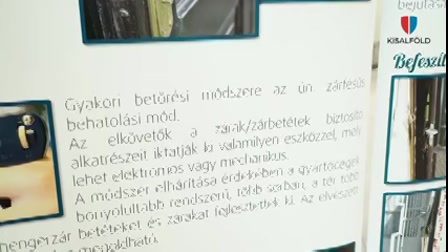 bejutási
KISALFÖLD
Befeszít
Gyakori betörési módszere az ún. zártésüs
behatolási mód.
Az elkövetők a zárak/zárbetétek biztosító
alkatrészeit iktatják ki valamilyen eszközzel, mely
lehet elektromos vagy mechanikus.
A módszer elhárítása érdekében a gyártócégek
bonyolultabb rendszerű, több sorban, a tér több
hengerzár betéteket és zárakat fejlesztettek ki. Az elvészen